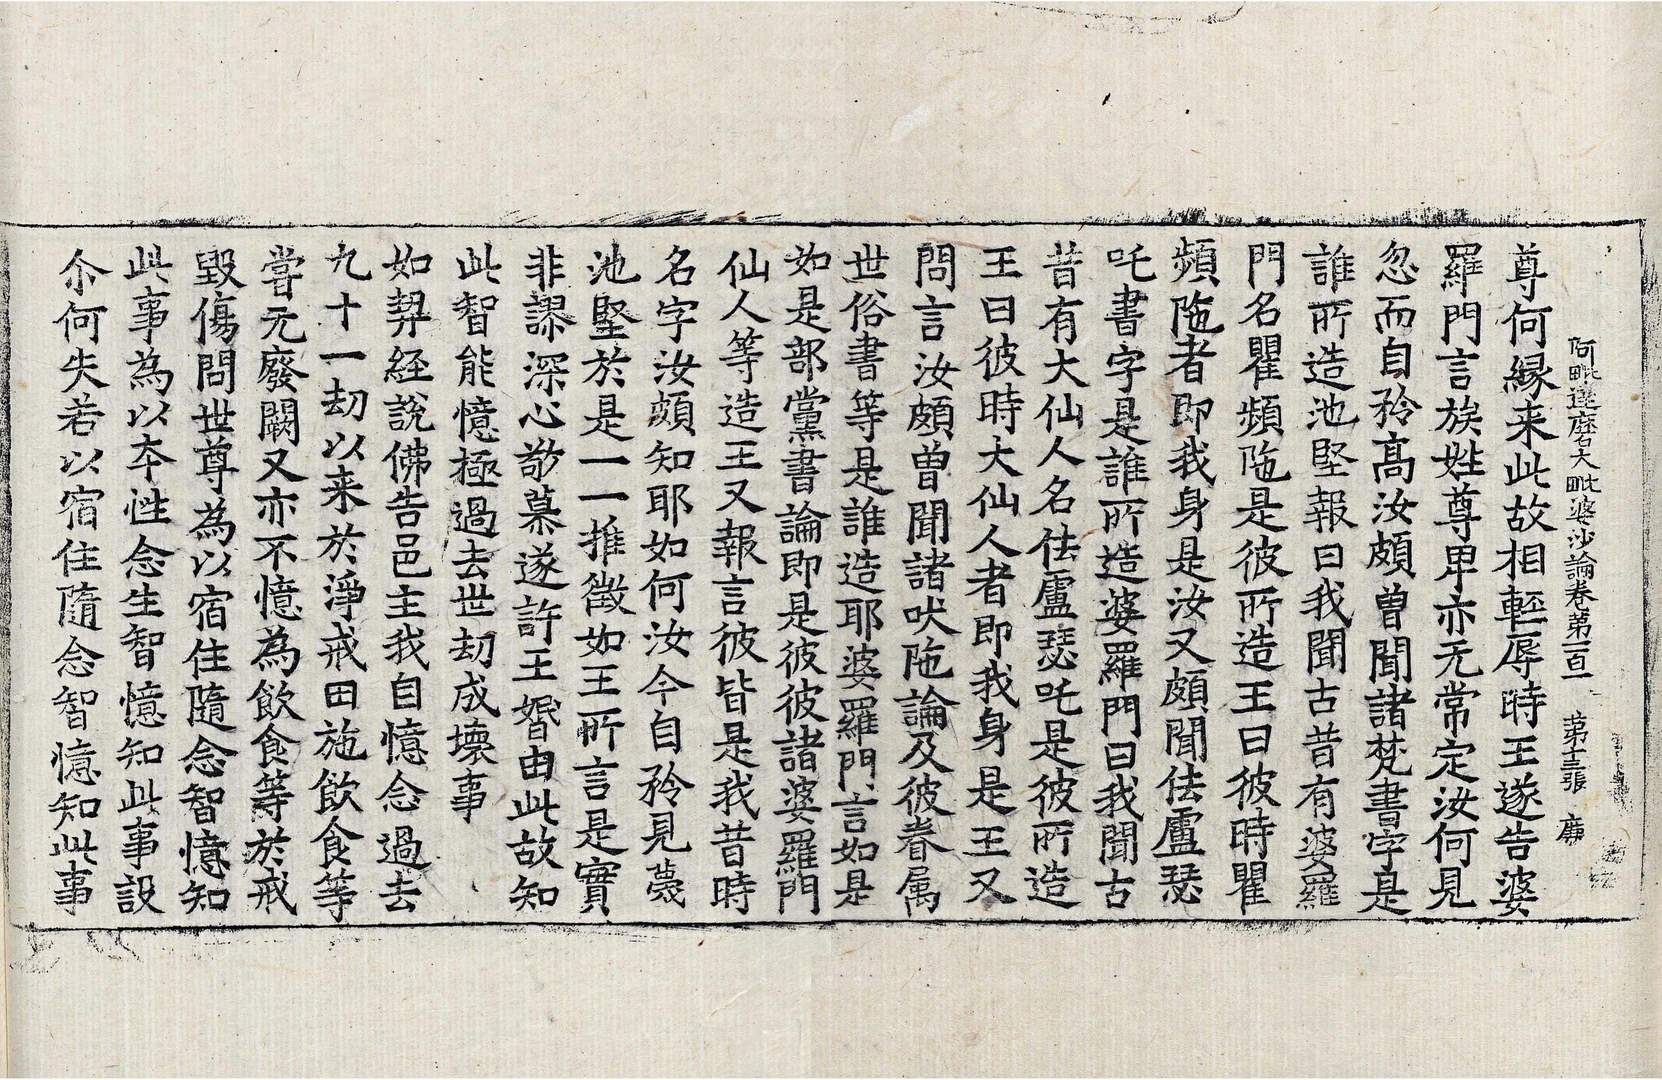 阿毗達磨大毗婆沙論卷第一百一　第十三張　廉
尊何緣来此故相輕辱時王遂告婆
羅門言族姓尊卑亦无常定汝何見
忽而自矜髙汝頗曾聞諸梵書字是
誰所造池堅報曰我聞古昔有婆羅
門名瞿頻陁是彼所造王曰彼時瞿
頻陁者即我身是汝又頗聞佉盧瑟
吒書字是誰所造婆羅門曰我聞古
昔有大仙人名佉盧瑟吒是彼所造
王曰彼時大仙人者即我身是王又
問言汝頗曾聞諸吠陁論及彼眷属
世俗書等是誰造耶婆羅門言如是
如是部黨書論即是彼彼諸婆羅門
仙人等造王又報言彼皆是我昔時
名字汝頗知耶如何汝今自矜見蔑
池堅於是一一推徵如王所言是實
非謬深心敬慕遂許王婚由此故知
此智能憶極過去世劫成壞事
如契経說佛告邑主我自憶念過去
九十一劫以来於淨戒田施飲食等
甞无廢闕又亦不憶為飲食等於戒
毀傷問世尊為以宿住隨念智憶知
此事為以夲性念生智憶知此事設
尒何失若以宿住隨念智憶知此事